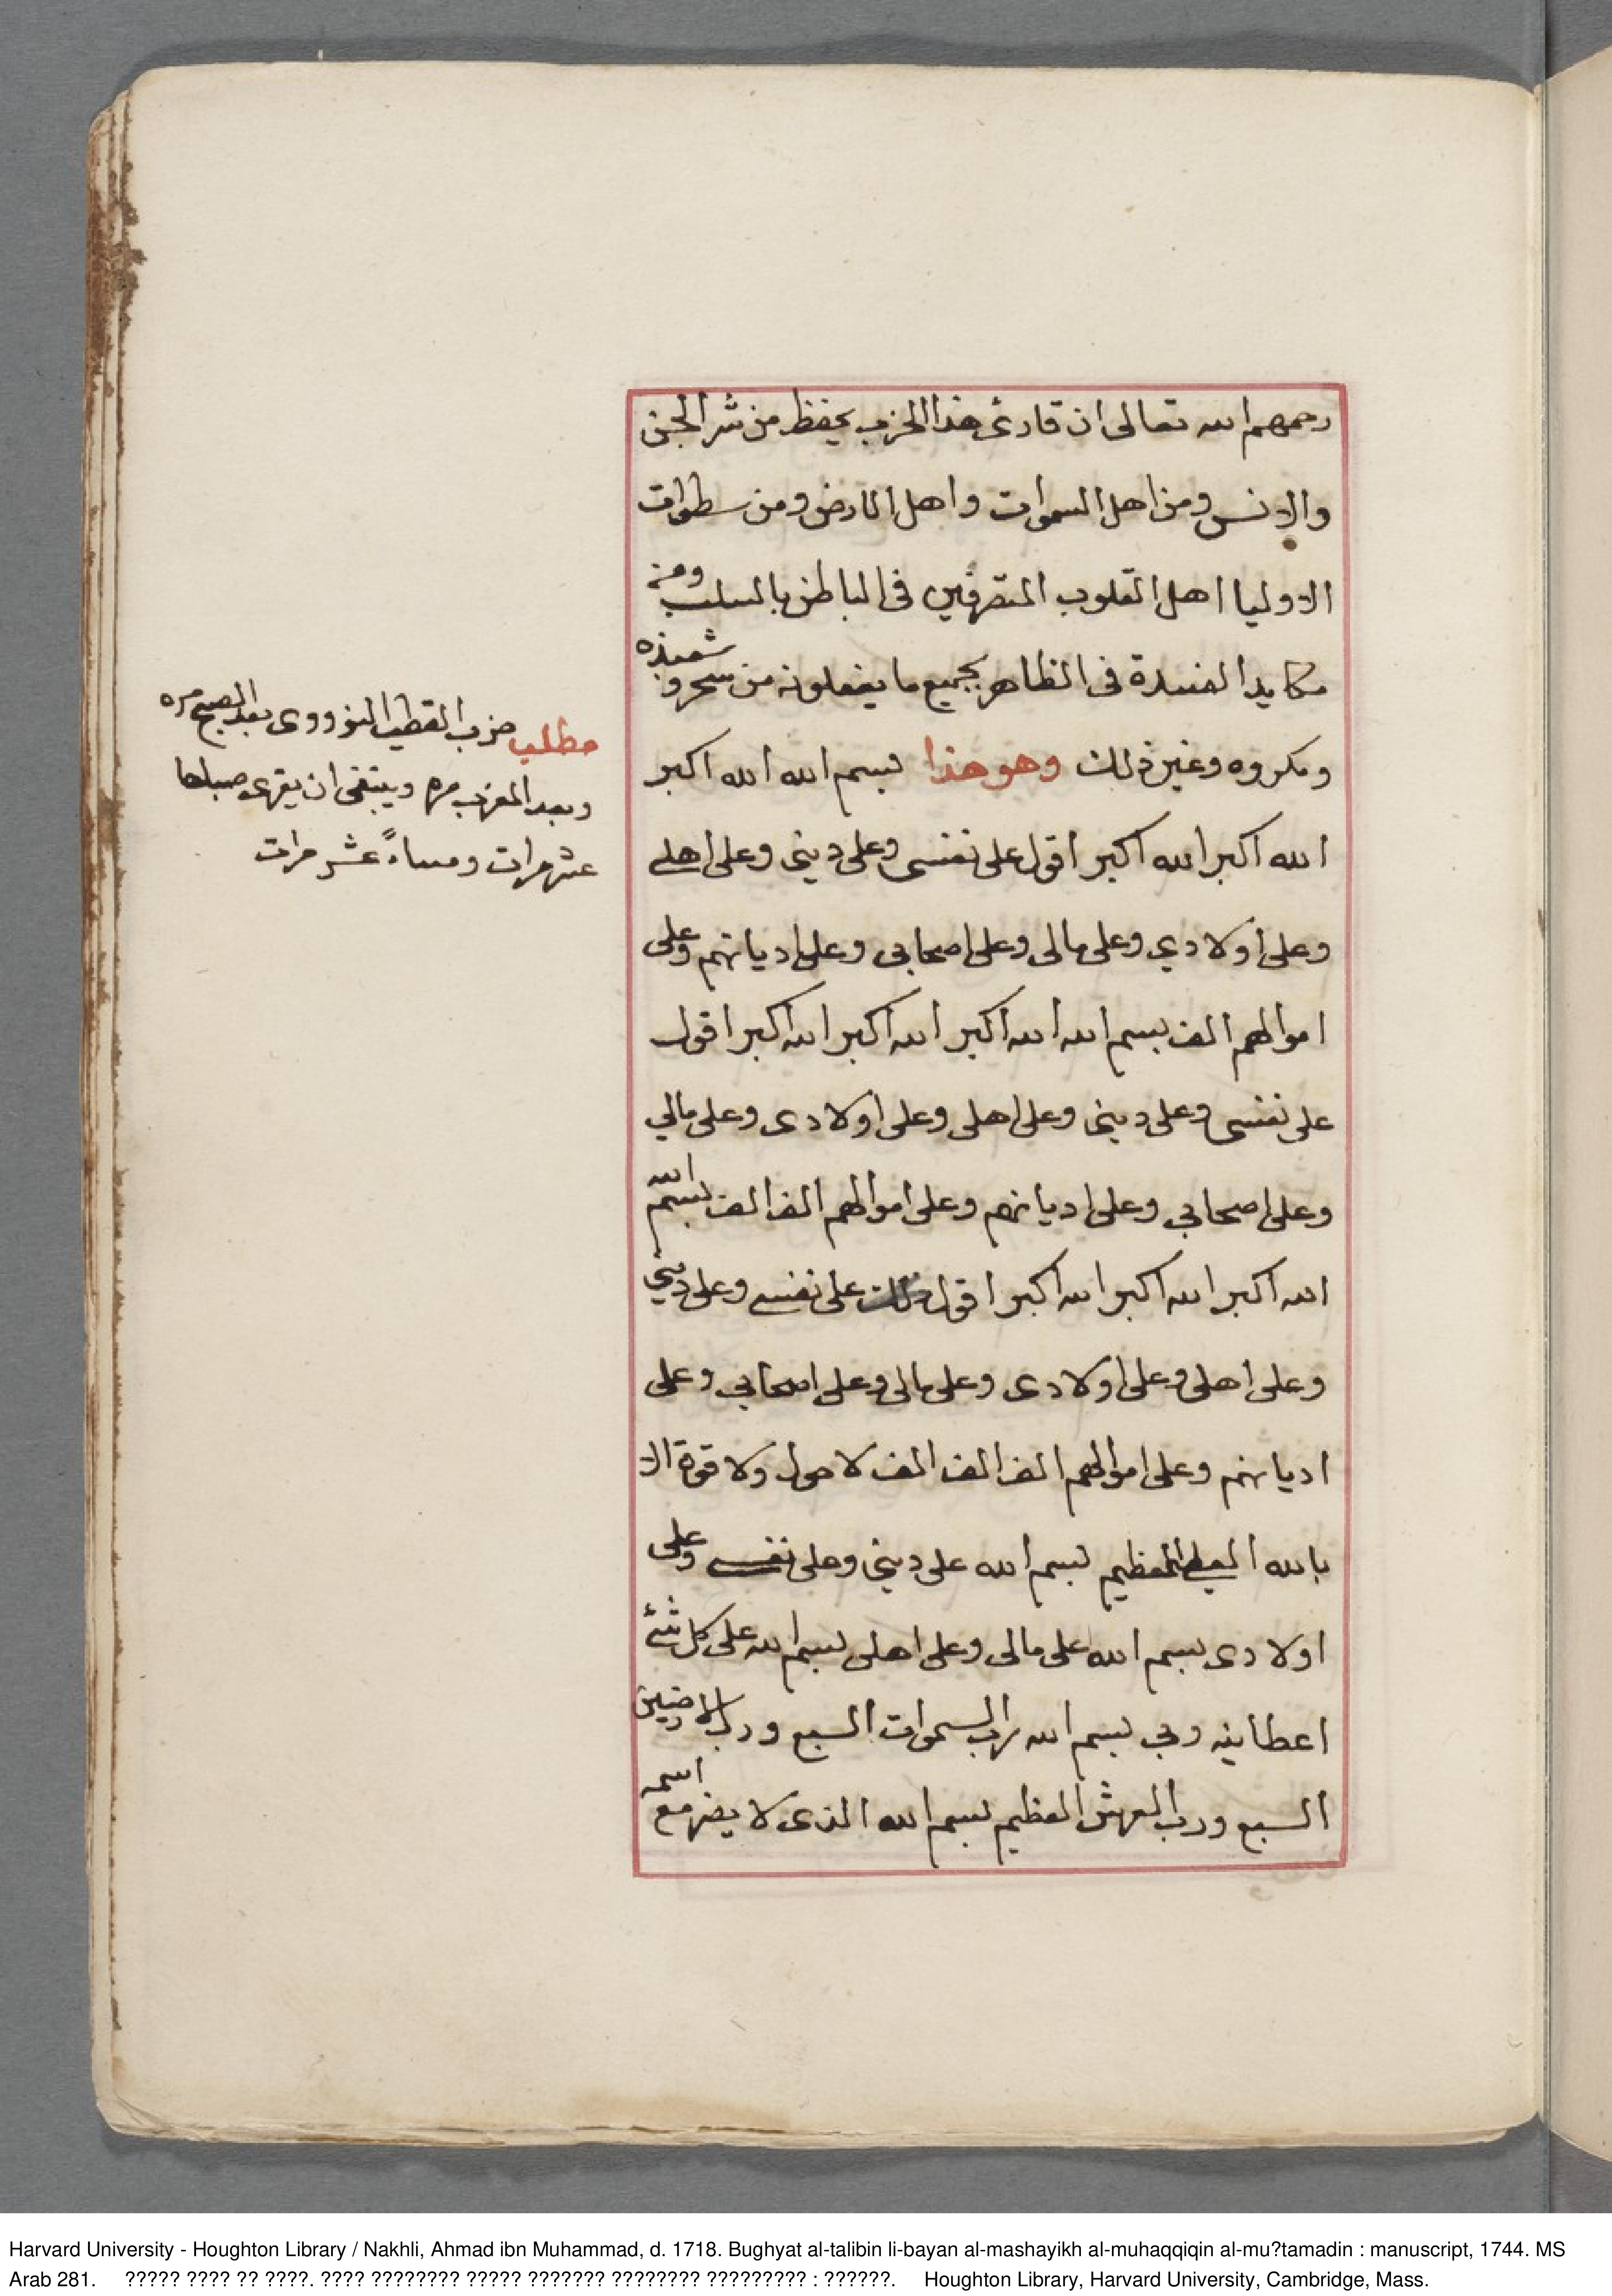 رحمهم الله تعالى ان قارئ هذا الحزب يحفظ من شر الجن
والانس ومن اهل السموات واهل الارض ومن سطوات
الاوليا اهل القلوب المتصرفين فى الباطن بالسلب ومن
مكايد المفسدة فى الظاهر بجميع ما يفعلونه من سحر وشعبذه
ومكروه وغير ذلك وهو هذا بسم الله الله اكبر
الله اكبر الله اكبر اقول على نفسى وعلى دينى وعلى اهلى
وعلى اولادي وعلى مالى وعلى اصحابى وعلى اديانهم وعلى
اموالهم الف بسم الله الله اكبر الله اكبر الله اكبر اقول
على نفسى وعلى دينى وعلى اهلى وعلى اولادى وعلى مالي
وعلى اصحابي وعلى اديانهم وعلى اموالهم الف الف بسم الله
الله اكبر الله اكبر الله اكبر اقول على نفسى وعلى دينى
وعلى اهلى وعلى اولادى وعلى مالى وعلى اصحابي وعلى
اديانهم وعلى اموالهم الف الف الف لا حول ولا قوة الا
بالله العلى العظيم بسم الله على دينى وعلى نفسى وعلى
اولادى بسم الله على مالى وعلى اهلى بسم الله على كل شئ
اعطانيه ربي بسم الله رب السموات السبع ورب الارضين
السبع ورب العرش العظيم بسم الله الذى لا يضر مع اسمه
مطلب حزب القطب النووى بعد الصبح مره
وبعد المغرب مره وينبغى ان يقرى صباحا
عشر مرات ومساءً عشر مرات
Harvard University - Houghton Library / Nakhli, Ahmad ibn Muhammad, d. 1718. Bughyat al-talibin li-bayan al-mashayikh al-muhaqqiqin al-mu?tamadin : manuscript, 1744. MS
Arab 281. ????? ???? ?? ????. ???? ???????? ????? ??????? ???????? ????????? : ??????. Houghton Library, Harvard University, Cambridge, Mass.